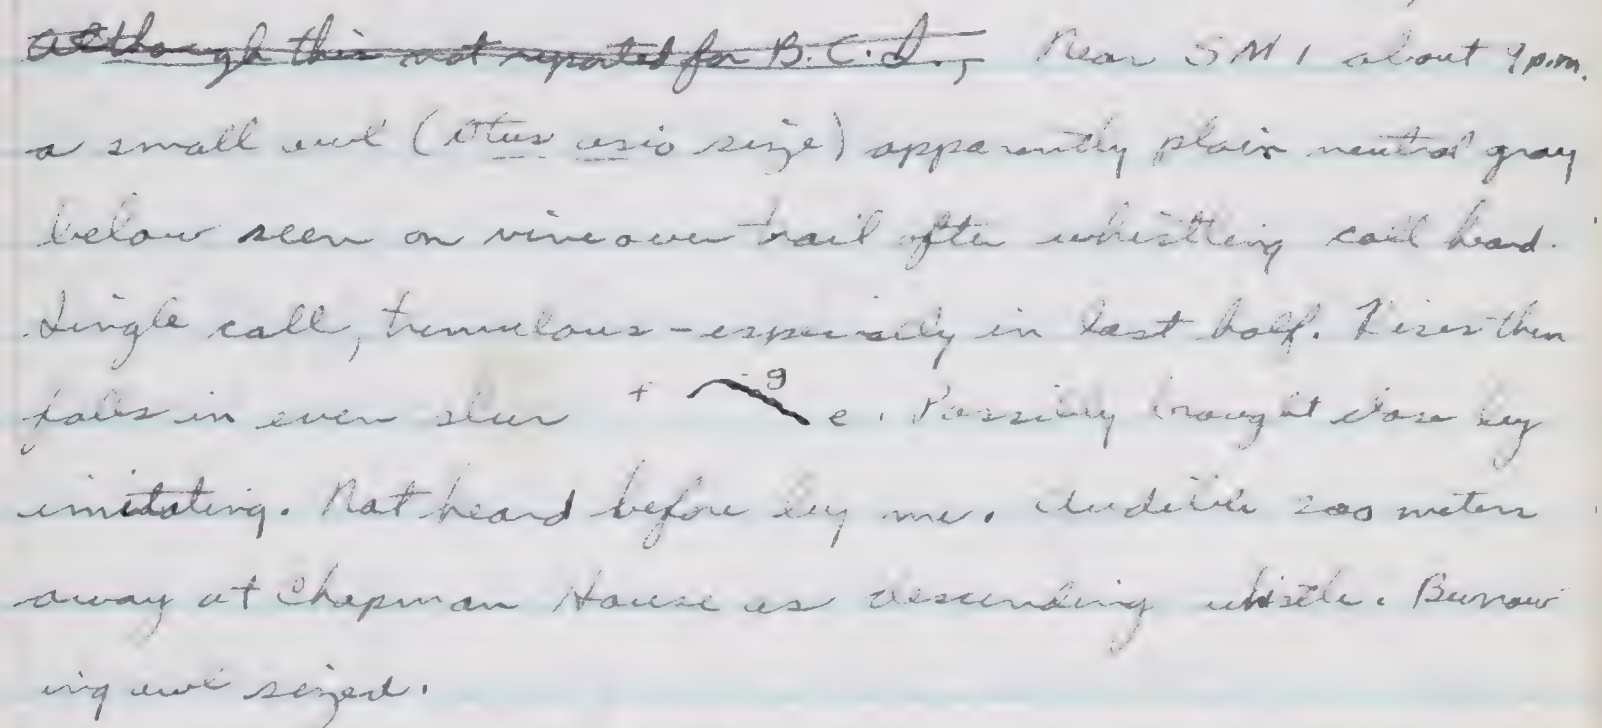 Although this not reported for B.C.I., Near SM 1 about 9 p.m.
a small owl (Otus asio size) apparently plain neutral gray
below seen on vine over trail after whistling call heard.
Single call, tremulous - especially in last half. Rises then
falls in even slur + g e. Possibly brought close by
imitating. Not heard before by me. Audible 200 meters
away at Chapman House as descending whistle. Burrow
ing owl sized.